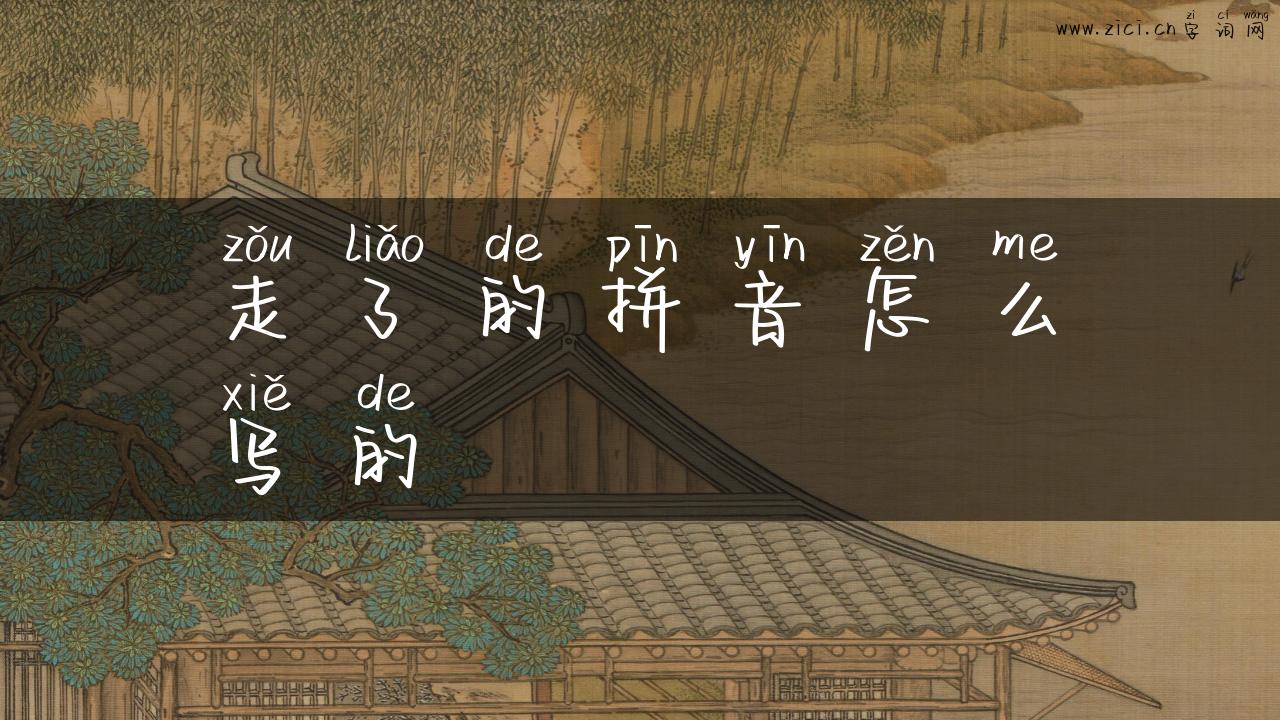 zì cí wǎng
www.zici.cn字词网
zǒu liǎo de pīn yīn zěn me
走了的拼音怎么
xiě de
写的